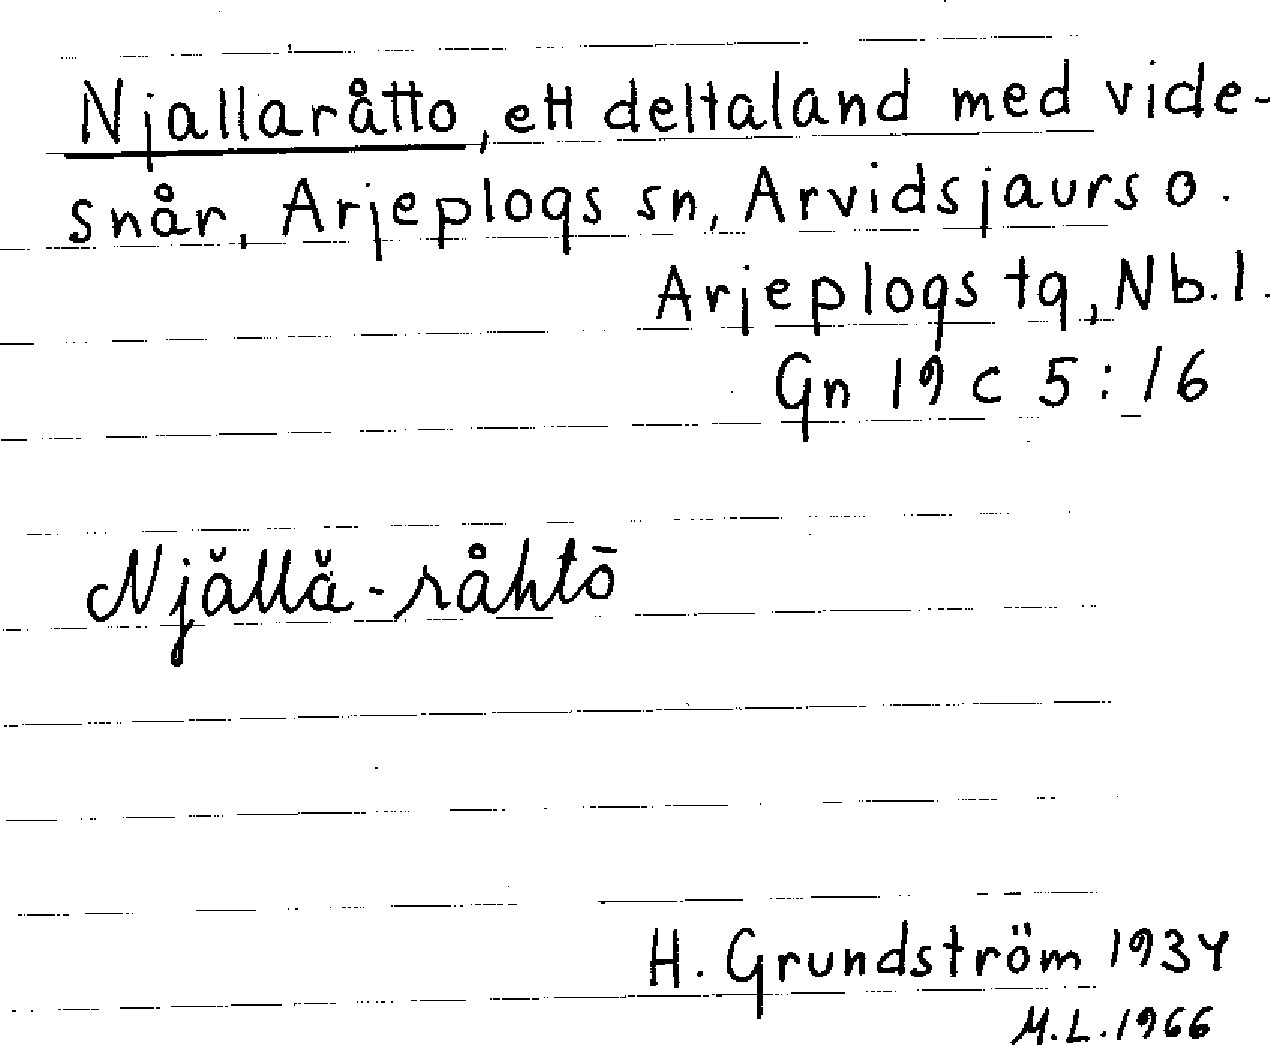 Njallaråtto, ett deltaland med vide-
snår, Arjeplogs sn, Arvidsjaurs o.
Arjeplogs tg, Nb.l.
Gn 19 c 5:16
Njăllă-råhtō
H. Grundström 1934
M.L. 1966